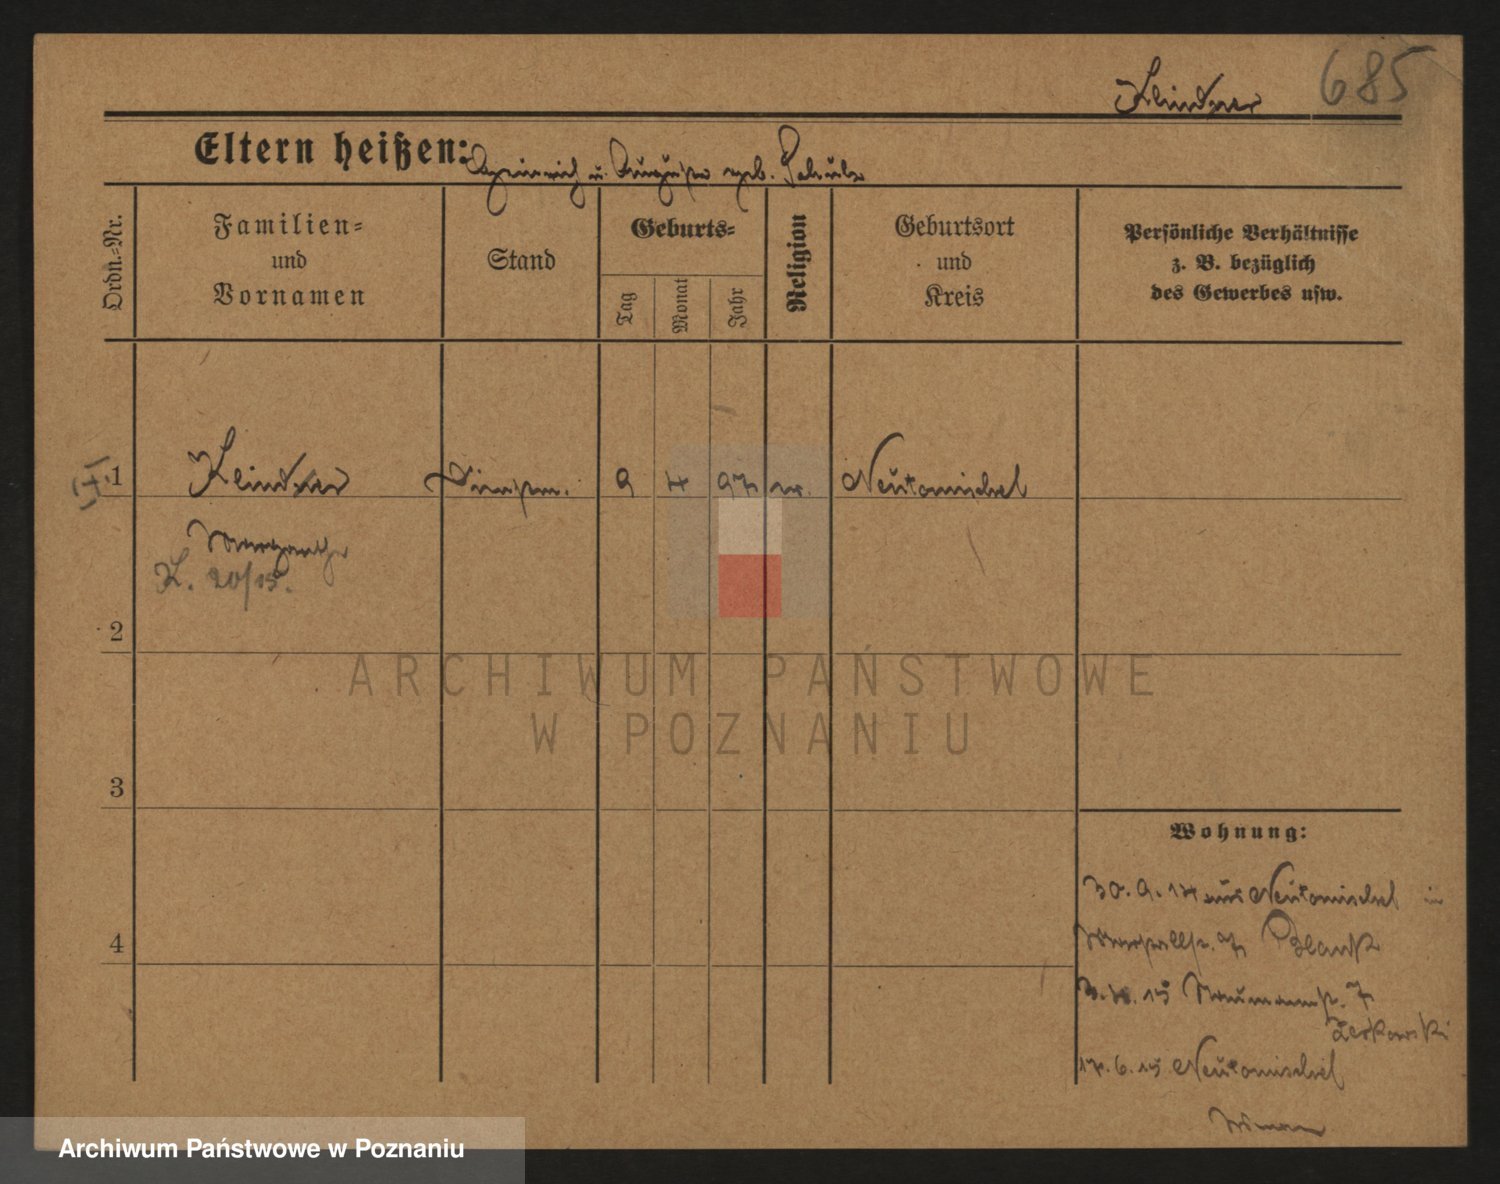 685
Eltern heißen: Heinrich u. Auguste geb. Schulz
Ordn.-Nr.
Familien-
und
Vornamen
Stand
Geburts-
Tag
Monat
Jahr
Religion
Geburtsort
und
Kreis
Persönliche Verhältnisse
z. B. bezüglich
des Gewerbes usw.
1
9 4 97 Neutomischel
K. 20/15.
2
ARCHIWUM PAŃSTWOWE
W POZNANIU
3
Wohnung:
30. 9. 14 aus Neutomischel in
4
7
15 Naumannstr. 7
17. 6. 15 Neutomischel
Archiwum Państwowe w Poznaniu